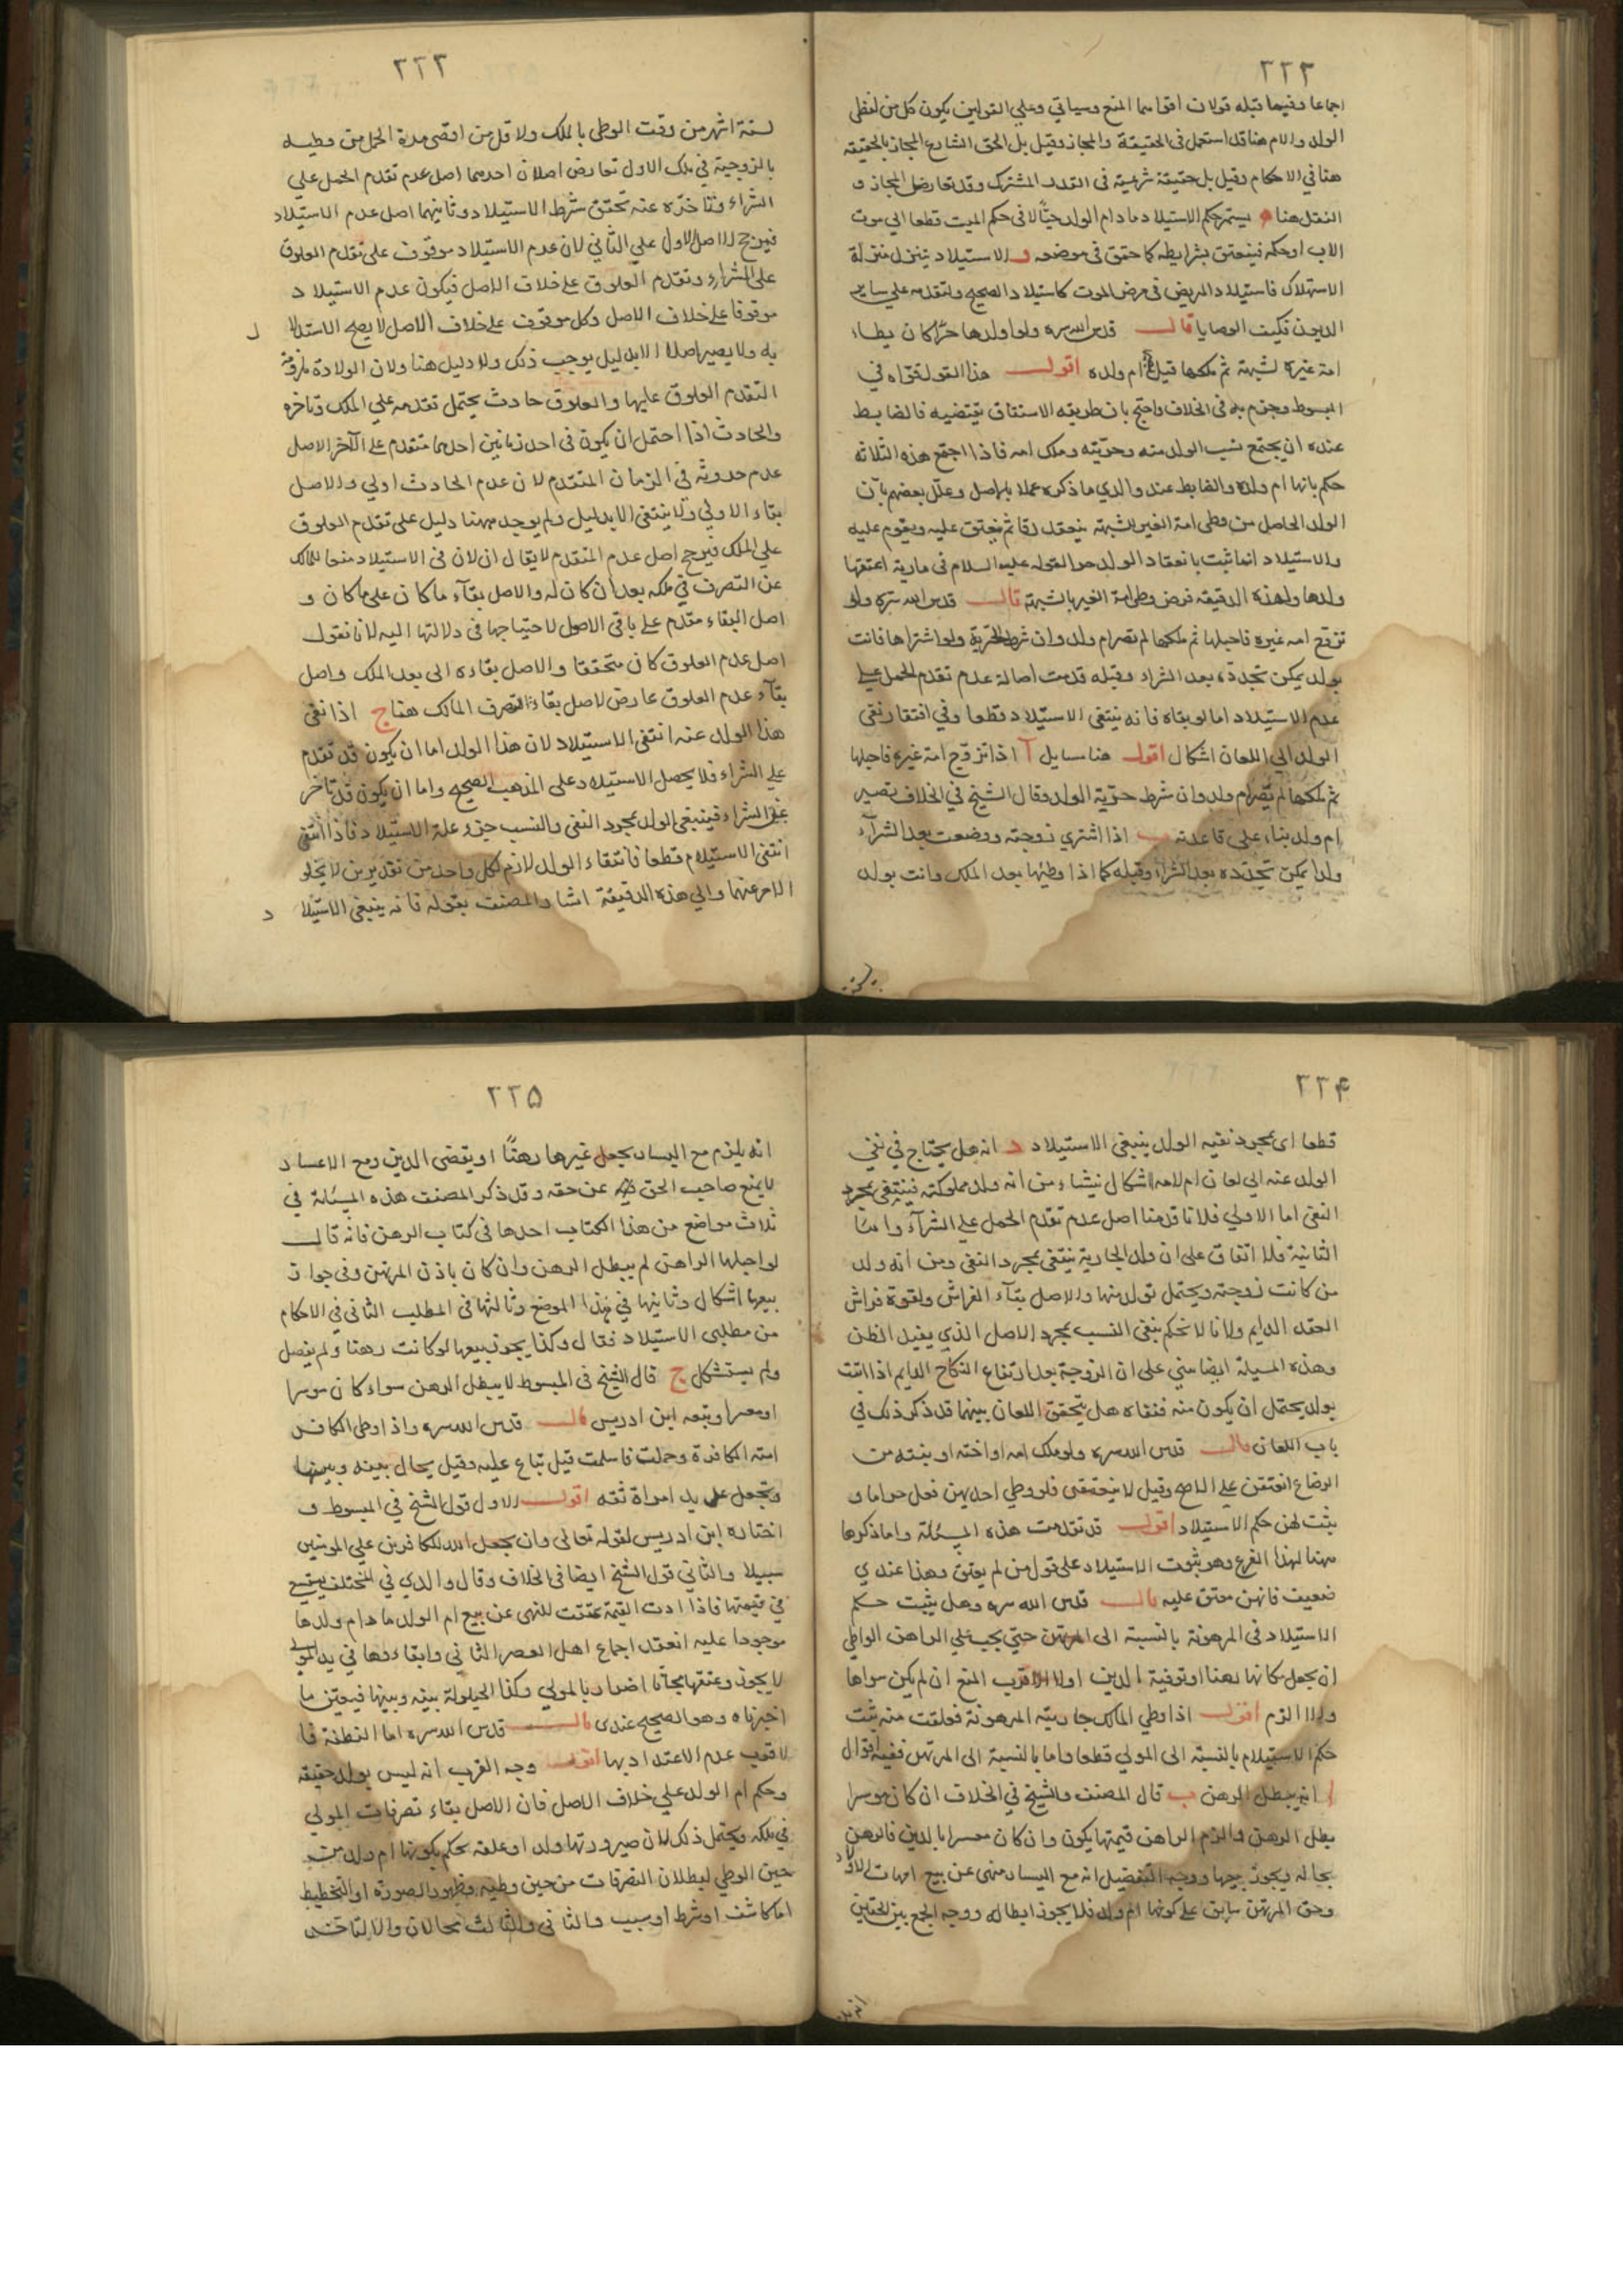 ٢٢٢
اجماعا وفيما قبله قولان اقواهما المنع وسياتي وعلي القولين يكون كل من لفظي
الولد والام هنا قد استعمل في الحقيقة والمجاز وقيل بل الحق الشارع المجاز بالحقيقة
هنا في الاحكام وقيل بل حقيقة شرعية في القدر المشترك وقد تعارض المجاز و
النقل هنا ه يستمر حكم الاستيلاد ما دام الولد حيًّا لا في حكم الميت قطعا الي موت
الاب او حكمه فينعتق بشرايطه كما حقق في موضعه و الاستيلاد يتنزل منزلة
الاستهلاك فاستيلاد المريض في مرض الموت كاستيلاد الصحيح ولتقدمه علي ساير
الديون فكيف الوصايا قال قدس الله سره ولو اولدها حرًّا كان يطاء
امة غيره لشبهة ثم ملكها قيل ام ولده اقول هذا القول قواه في
المبسوط وجزم به في الخلاف واحتج بان طريقه الاشتقاق يقتضيه فالضابط
عنده ان يجتمع نسب الولد منه وحريته وملك امه فاذا اجتمع هذه الثلاثه
حكم بانها ام ولده والضابط عند والدي ما ذكره عملا بالاصل وعلل بعضهم بان
الولد الحاصل من وطي امة الغير بالشبهة ينعقد رقا ثم يعتق عليه ويقوم عليه
والاستيلاد انما ثبت بانعقاد الولد حرا لقوله عليه السلام في مارية اعتقها
ولدها ولهذه الدقيقه فرض وطي امة الغير بالشبهة قال قدس الله سره ولو
تزوج امه غيره فاحبلها ثم ملكها لم تصر ام ولد وان شرط الحرية ولو اشتراها فاتت
بولد يمكن تجدده بعد الشراء وقبله قدمت اصالة عدم تقدم الحمل علي
عدم الاستيلاد اما لو نفاه فانه ينتفي الاستيلاد قطعا وفي افتقار نفي
الولد الي اللعان اشكال اقول هنا مسايل آ اذا تزوج امة غيره فاحبلها
ثم ملكها لم تصر ام ولد وان شرط حرية الولد وقال الشيخ في الخلاف تصير
ام ولد بناء علي قاعدته ب اذا اشتري زوجته ووضعت بعد الشرآء
ولدا يمكن تجدده بعد الشراء وقبله كما اذا وطئها بعد الملك واتت بولد
٢٢٣
لستة اشهر من وقت الوطي بالملك ولاقل من اقصي مدة الحمل من وطيه
بالزوجية في ملك الاول تعارض اصلان احدهما اصل عدم تقدم الحمل علي
الشراء وتاخره عنه تحقق شرط الاستيلاد وثانيهما اصل عدم الاستيلاد
فيرجح الاصل الاول علي الثاني لان عدم الاستيلاد موقوف علي تقدم العلوق
علي الشراء وتقدم العلوق علي خلاف الاصل فيكون عدم الاستيلاد
موقوفا علي خلاف الاصل وكل موقوف علي خلاف الاصل لا يصح الاستدلال
به ولا يصير اصلا الا بدليل يوجب ذلك ولا دليل هنا ولان الولادة
التقدم العلوق عليها والعلوق حادث يحتمل تقدمه علي الملك وتاخره
والحادث اذا احتمل ان يكون في احد زمانين احدهما متقدم علي الآخر الاصل
عدم حدوثه في الزمان المتقدم لان عدم الحادث اولي والاصل
بقاء الاولي ولا ينتفي الا بدليل ولم يوجد ههنا دليل علي تقدم العلوق
علي الملك فيرجح اصل عدم المتقدم لا يقال ان لان في الاستيلاد منعا للمالك
عن التصرف في ملكه بعد ان كان له والاصل بقآء ما كان علي ما كان و
اصل البقاء مقدم علي باقي الاصول لاحتياجها في دلالتها اليه لانا نقول
اصل عدم العلوق كان متحققا والاصل بقاءه الي بعد الملك واصل
بقآء عدم العلوق عارض لاصل بقاء التصرف المالك هنا ج اذا نفي
هذا الولد عنه انتفي الاستيلاد لان هذا الولد اما ان يكون قد تقدم
علي الشراء فلا يحصل الاستيلاد علي المذهب الصحيح واما ان يكون قد تاخر
عن الشراء فينتفي الولد بمجرد النفي والنسب جزء علة الاستيلاد فاذا انتفي
انتفي الاستيلاد قطعا فانتفاء الولد لازم لكل واحد من تقديرين لا يخلو
الامر عنهما والي هذه الدقيقة اشار المصنف بقوله فانه ينتفي الاستيلاد
٢٢۴
قطعا اي بمجرد نفيه الولد ينتفي الاستيلاد د انه هل يحتاج في نفي
الولد عنه الي لعان ام لا فيه اشكال ينشاء من انه ولد مملوكته فينتفي بمجرد
النفي اما الاولي فلانا قدمنا اصل عدم تقدم الحمل علي الشرآء واما
الثانية فلا اتفاق علي ان ولد الجارية ينتفي بمجرد النفي ومن انه ولد
من كانت زوجته ويحتمل تولد منها والاصل بقآء الفراش ولقوة فراش
العقد الدايم ولانا لا نحكم بنفي النسب بمجرد الاصل الذي يفيد الظن
وهذه المسيلة ايضا مبني علي ان الزوجة بعد ارتفاع النكاح الدايم اذا اتت
بولد يحتمل ان يكون منه فنفاه هل يتحقق اللعان بينهما قد ذكر ذلك في
باب اللعان قال قدس الله سره ولو ملك امه او اخته او بنته من
الرضاع انعتقن علي الاصح وقيل لا ينعتقن فلو وطي احديهن فعل حراما و
يثبت لهن حكم الاستيلاد اقول قد تقدمت هذه المسئلة وانما ذكرها
ههنا لهذا الفرع وهو ثبوت الاستيلاد علي قول من لم يعتق وهذا عندي
ضعيف فانهن معتق عليه قال قدس الله سره وهل يثبت حكم
الاستيلاد في المرهونة بالنسبة الي المرتهن حتي يجب علي الراهن الواطي
ان يجعل مكانها رهنا او توفية الدين اولا الاقرب المنع ان لم يكن سواها
والا الزم اقول اذا وطي المالك جاريته المرهونة فعلقت منه ثبت
حكم الاستيلاد بالنسبة الي المولي قطعا واما بالنسبة الي المرتهن ففيه اقوال
ا انه يبطل الرهن ب قال المصنف والشيخ في الخلاف ان كان موسرا
بطل الرهن والزم الراهن قيمتها يكون وان كان معسرا بالدين فالرهن
بحاله ويجوز بيعها ووجه التفصيل انه مع اليسار منهي عن بيع امهات الاولاد
وحق المرتهن سابق علي كونها ام ولد فلا يجوز ابطاله ووجه الجمع بين الحقين
٢٢۵
انه يلزم مع اليسار بجعل غيرها رهنًا او يقضي الدين ومع الاعسار
لا يمنع صاحب الحق عن حقه وقد ذكر المصنف هذه المسئلة في
ثلاث مواضع من هذا الكتاب احدها في كتاب الرهن فانه قال
لو احبلها الراهن لم يبطل الرهن وان كان باذن المرتهن وفي جواز
بيعها اشكال وثانيها في هذا الموضع وثالثها في المطلب الثاني في الاحكام
من مطلبي الاستيلاد فقال وكذا يجوز بيعها لو كانت رهنا ولم يفصل
ولم يستشكل ج قال الشيخ في المبسوط لا يبطل الرهن سواء كان موسرا
او معسرا وتبعه ابن ادريس قال قدس الله سره واذا وطي الكافر
امته الكافرة وحملت فاسلمت قيل تباع عليه وقيل يحال بينه وبينها
وتجعل علي يد امراة ثقه اقول الاول قول الشيخ في المبسوط و
اختاره ابن ادريس لقوله تعالي ولن يجعل الله للكافرين علي المومنين
سبيلا والثاني قول الشيخ ايضا في الخلاف وقال والدي في المختلف يستسعي
في قيمتها فاذا ادت القيمة عتقت للنهي عن بيع ام الولد ما دام ولدها
موجودا عليه انعقد اجماع اهل العصر الثاني وابقاءوها في يد المولي
لا يجوز وعتقها مجانا اضرار بالمولي وكذا الحيلولة بينه وبينها فيتعين ما
اخترناه وهو الصحيح عندي قال قدس الله سره اما النطفة فا
لاقرب عدم الاعتداد بها اقول وجه القرب انه ليس بولد حقيقة
وحكم ام الولد علي خلاف الاصل فان الاصل بقاء تصرفات المولي
في ملكه ويحتمل ذلك لان صيرورتها ولدا او علقه تحكم بكونها ام ولد من
حين الوطي لبطلان التصرفات من حين وطيه وظهور الصورة او التخطيط
اما كاشف او شرط او سبب والثاني والثالث محالان والا لتاخر